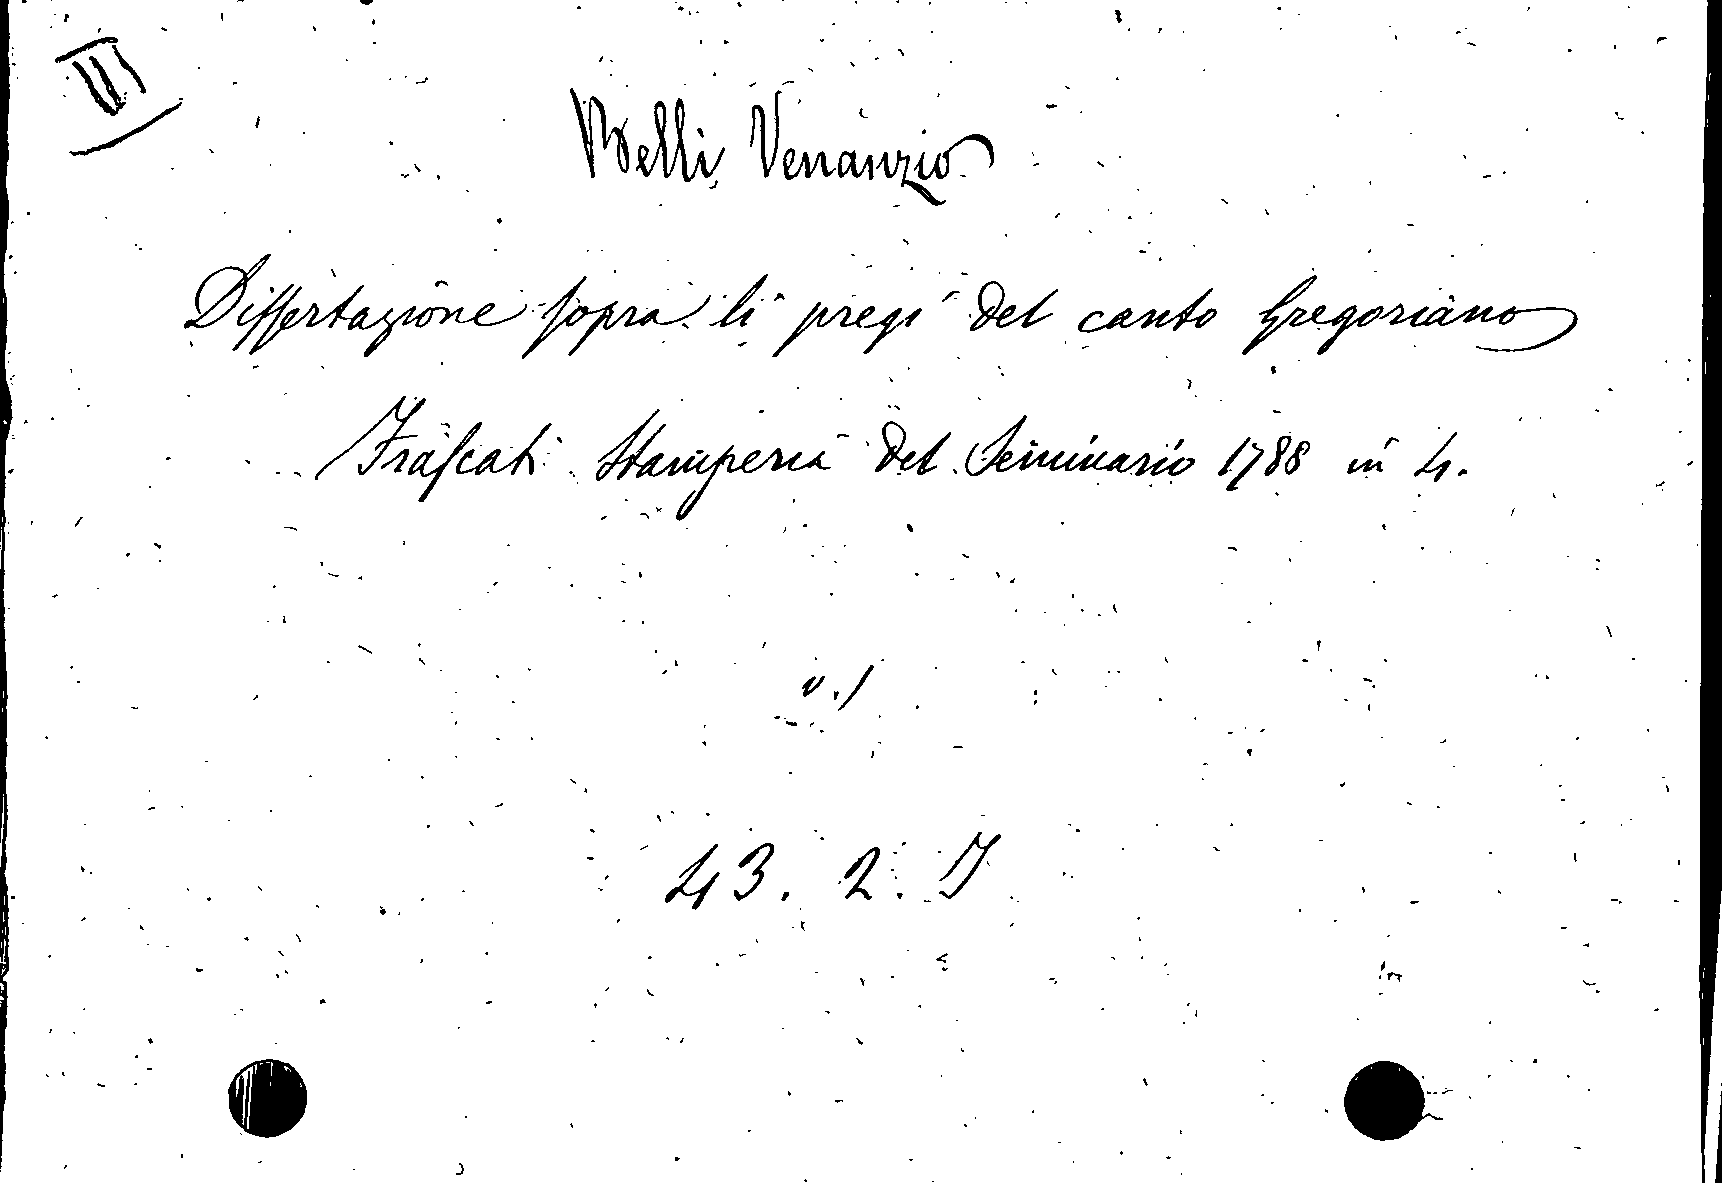 III
Belli Venanzio
Dissertazione sopra li pregi del canto Gregoriano
Frascati Stamperia del Seminario 1788 in 4.
v. /
43. 2. I